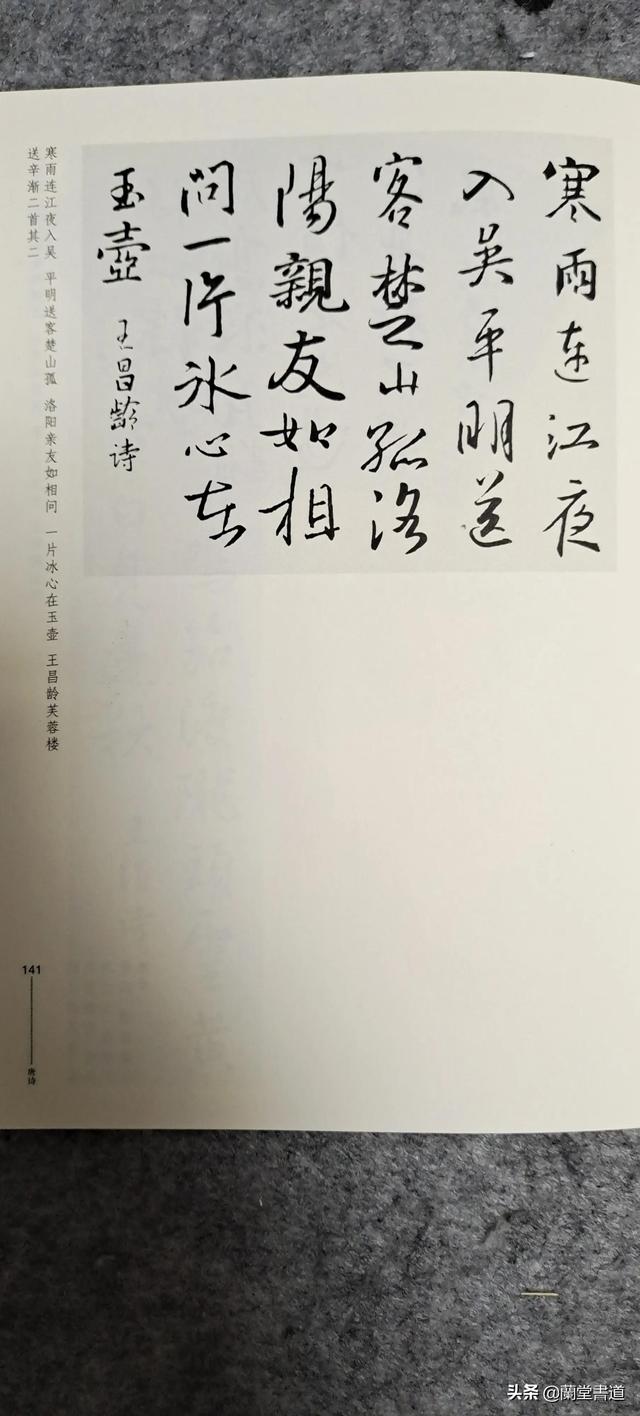 寒雨连江夜
入吴平明送
客楚山孤洛
陽親友如相
問一片冰心在
玉壺
王昌齡诗
寒雨连江夜入吴 平明送客楚山孤 洛阳亲友如相问 一片冰心在玉壶 王昌龄芙蓉楼
送辛渐二首其二
141
唐诗
头条 @蘭堂書道